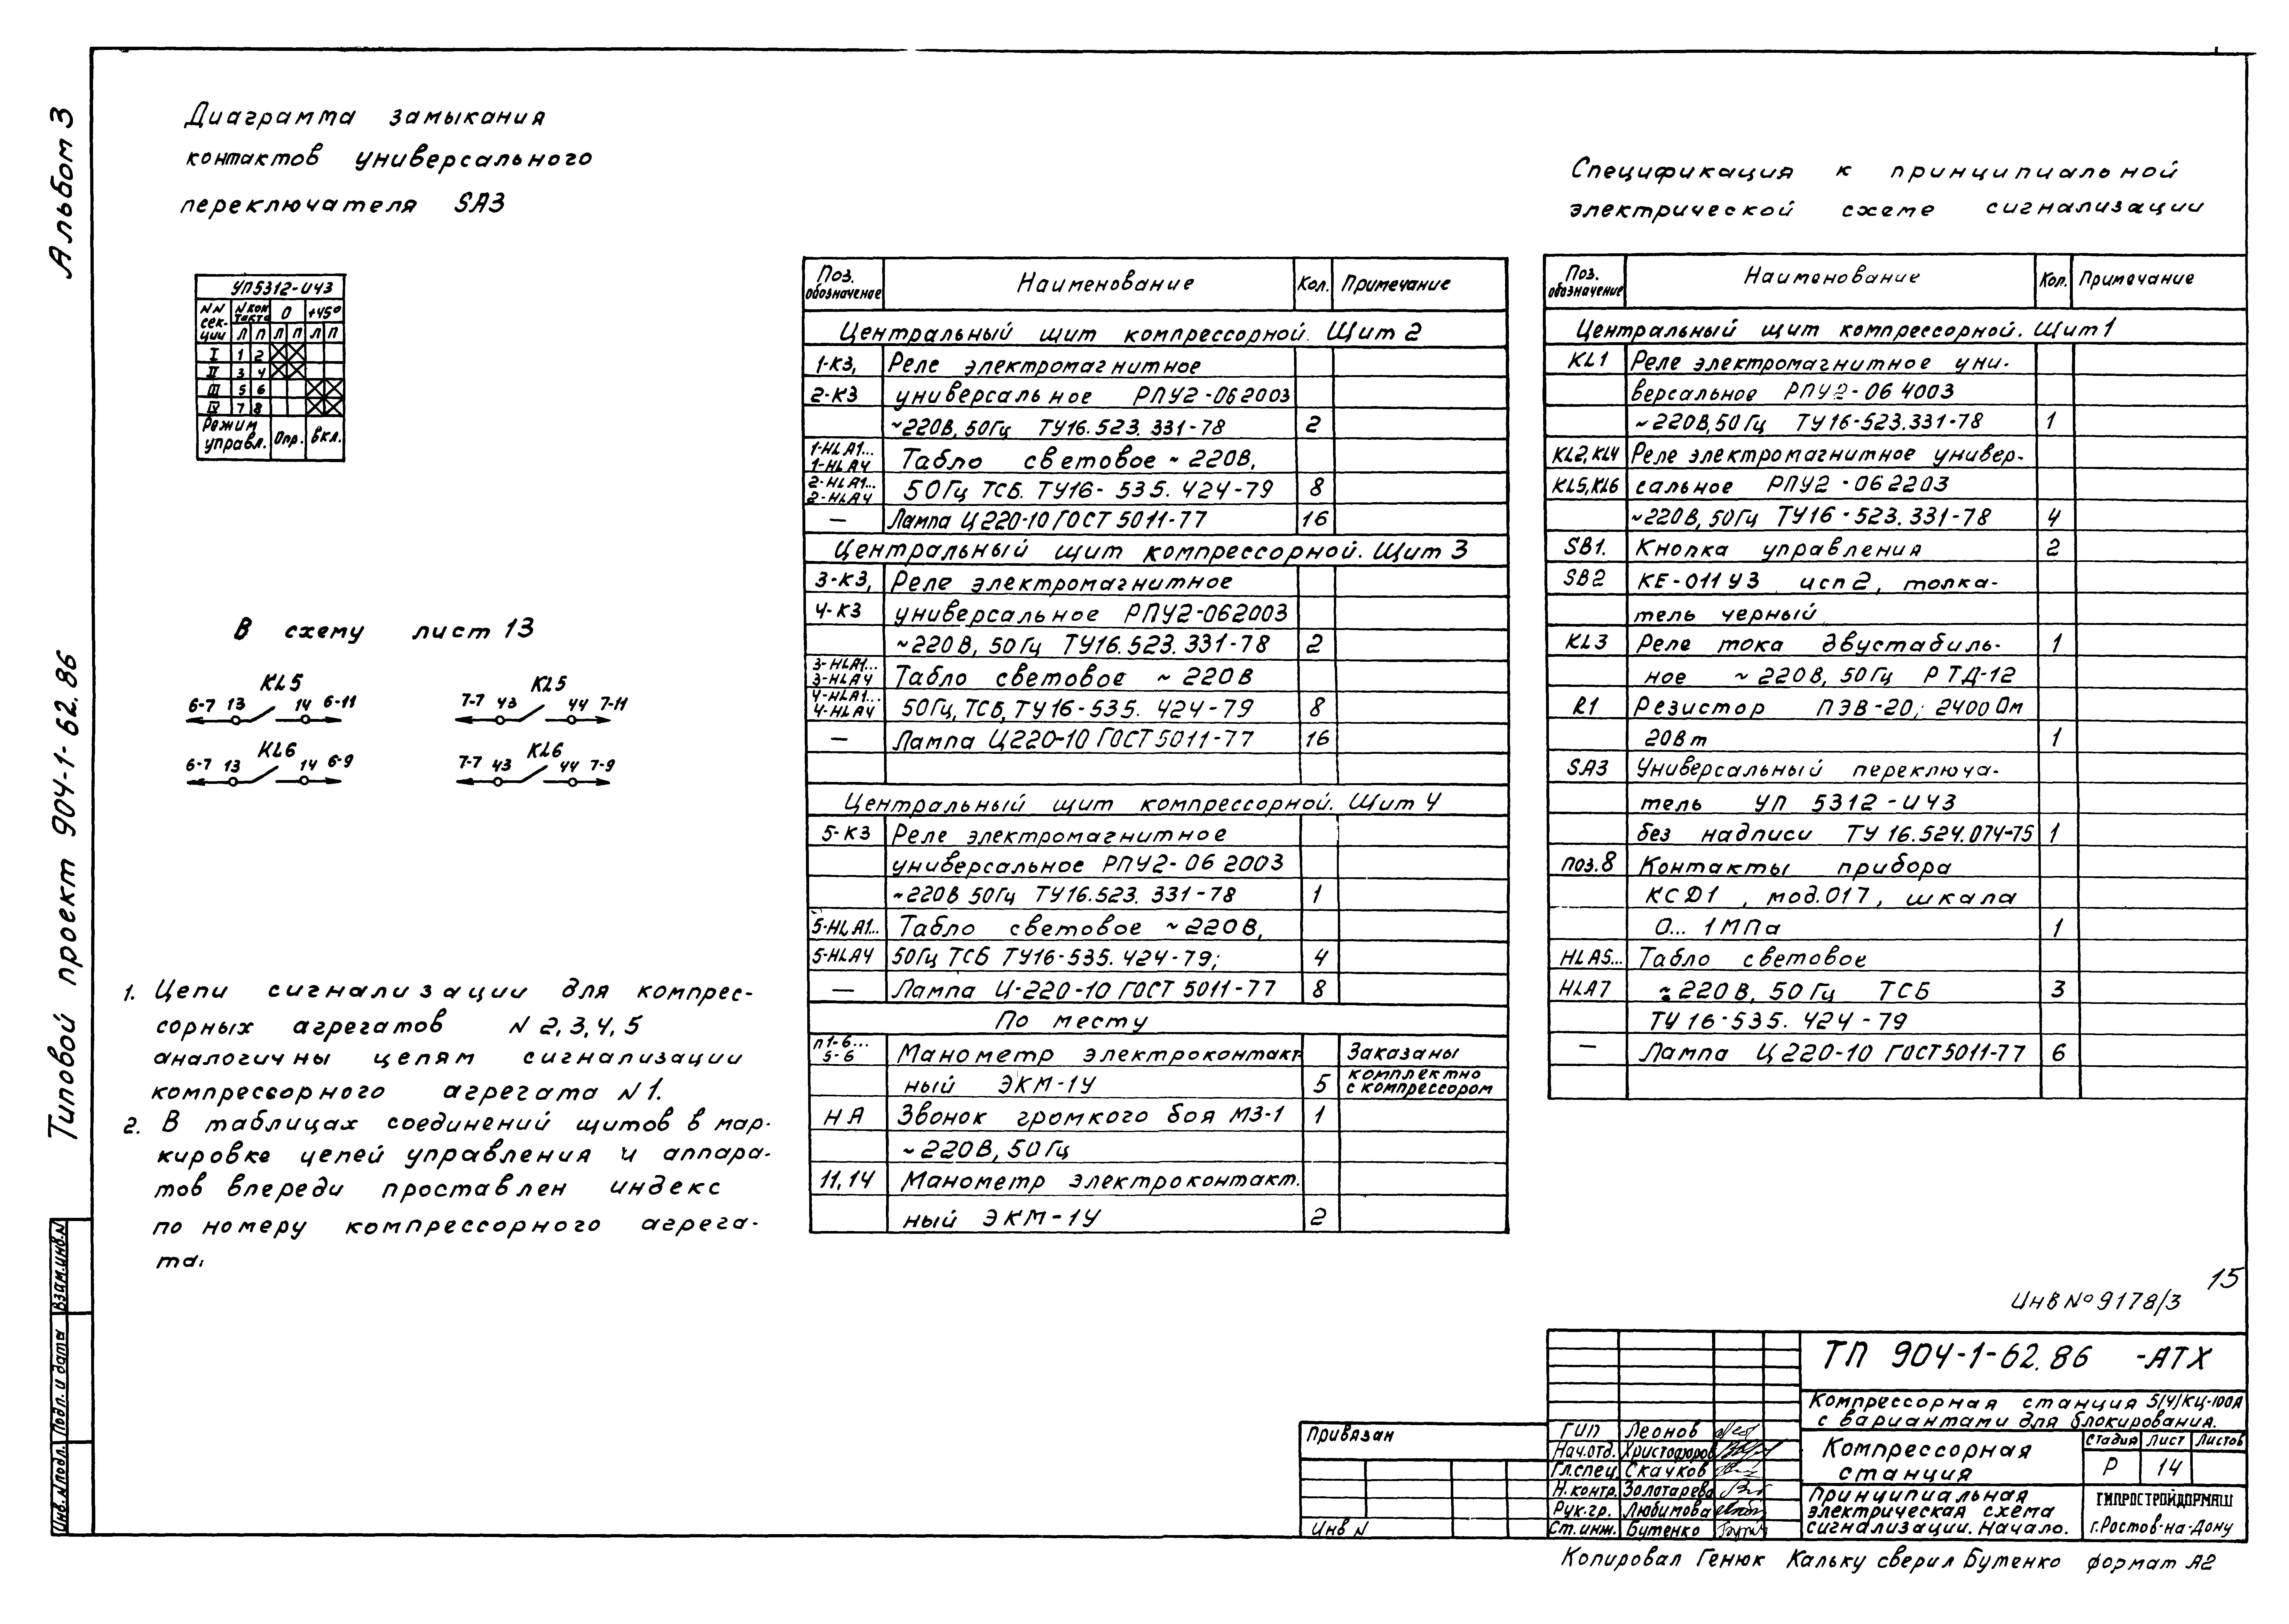 Альбом 3
Типовой проект 904-1-62.86
Взам.инв.N
Подп. и дата
Инв.Nподл.
Диаграмма замыкания
контактов универсального
переключателя SA3
УП5312-И43
NN сек-ции | N кон такта | 0 | +45°
Л П Л П Л П
I 1 2
II 3 4
III 5 6
IV 7 8
Режим управл. Опр. Вкл.
В схему лист 13
KL5
6-7 13 14 6-11
KL5
7-7 43 44 7-11
KL6
6-7 13 14 6-9
KL6
7-7 43 44 7-9
1. Цепи сигнализации для компрес-
сорных агрегатов N 2,3,4,5
аналогичны цепям сигнализации
компрессорного агрегата N1.
2. В таблицах соединений щитов в мар-
кировке цепей управления и аппара-
тов впереди проставлен индекс
по номеру компрессорного агрега-
та.
Поз. обозначение | Наименование | Кол. | Примечание
Центральный щит компрессорной. Щит 2
1-К3, Реле электромагнитное
2-К3 универсальное РПУ2-062003
~220В, 50Гц ТУ16.523.331-78 2
1-HLA1... 1-HLA4 Табло световое ~220В,
2-HLA1... 2-HLA4 50Гц ТСБ. ТУ16-535.424-79 8
— Лампа Ц220-10 ГОСТ 5011-77 16
Центральный щит компрессорной. Щит 3
3-К3, Реле электромагнитное
4-К3 универсальное РПУ2-062003
~220В, 50Гц ТУ16.523.331-78 2
3-HLA1... 3-HLA4 Табло световое ~220В
4-HLA1... 4-HLA4 50Гц, ТСБ, ТУ16-535.424-79 8
— Лампа Ц220-10 ГОСТ 5011-77 16
Центральный щит компрессорной. Щит 4
5-К3 Реле электромагнитное
универсальное РПУ2-06 2003
~220В 50Гц ТУ16.523.331-78 1
5-HLA1... Табло световое ~220В,
5-HLA4 50Гц ТСБ ТУ16-535.424-79; 4
— Лампа Ц-220-10 ГОСТ 5011-77 8
По месту
п1-6... 5-6 Манометр электроконтакт Заказаны
ный ЭКМ-1У 5 комплектно с компрессором
НА Звонок громкого боя МЗ-1 1
~220В, 50Гц
11,14 Манометр электроконтакт.
ный ЭКМ-1У 2
Спецификация к принципиальной
электрической схеме сигнализации
Поз. обозначение | Наименование | Кол. | Примечание
Центральный щит компрессорной. Щит 1
KL1 Реле электромагнитное уни-
версальное РПУ2-06 4003
~220В,50Гц ТУ16-523.331-78 1
KL2,KL4 Реле электромагнитное универ-
KL5,KL6 сальное РПУ2-062203
~220В, 50Гц ТУ16-523.331-78 4
SB1. Кнопка управления 2
SB2 КЕ-011У3 исп 2, толка-
тель черный
KL3 Реле тока двустабиль- 1
ное ~220В, 50Гц РТД-12
R1 Резистор ПЭВ-20; 2400 Ом
20Вт 1
SA3 Универсальный переключа-
тель УП 5312-И43
без надписи ТУ 16.524.074-75 1
поз.8 Контакты прибора
КСД1, мод.017, шкала
0... 1МПа 1
HLA5... Табло световое
HLA7 ~220В, 50Гц ТСБ 3
ТУ16-535.424-79
— Лампа Ц220-10 ГОСТ5011-77 6
15
Инв № 9178/3
ТП 904-1-62.86 -АТХ
Компрессорная станция 5(4)КЦ-100А
с вариантами для блокирования.
Компрессорная станция
Стадия Лист Листов
Р 14
Принципиальная
электрическая схема
сигнализации. Начало.
ГИПРОСТРОЙДОРМАШ
г.Ростов-на-Дону
Привязан
Инв N
ГИП Леонов
Нач.отд. Христофоров
Гл.спец. Скачков
Н.контр. Золотарева
Рук.гр. Любимова
Ст.инж. Бутенко
Копировал Генюк Кальку сверил Бутенко формат А2